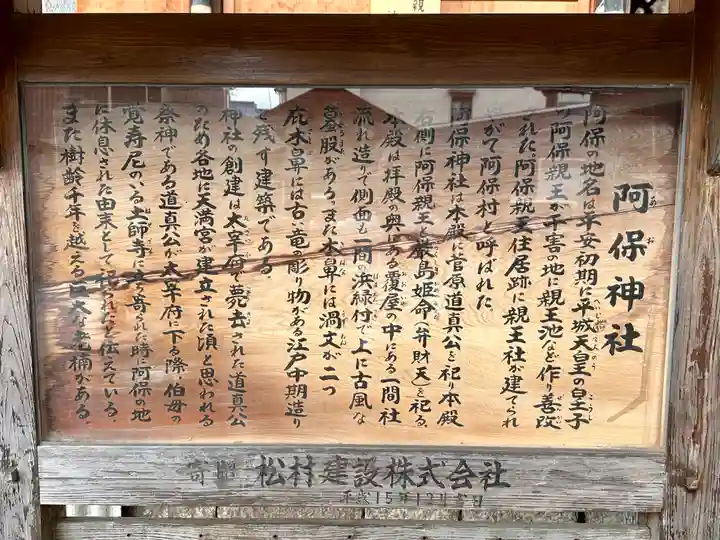 阿保神社
阿保の地名は平安初期に平城天皇の皇子
の阿保親王が干害の地に親王池など作り善政
された。阿保親王住居跡に親王社が建てられ
やがて阿保村と呼ばれた。
阿保神社は本殿に菅原道真公を祀り本殿
右側に阿保親王と厳島姫命(弁財天)を祀る。
本殿は拝殿の奥にある覆屋の中にある一間社
流れ造りで側面も一間の浜縁付で上に古風な
蟇股がある。また木鼻には渦文が二つ
庇木鼻には古い竜の彫り物がある江戸中期造り
を残す建築である。
神社の創建は太宰府で薨去された道真公
のため各地に天満宮が建立された頃と思われる
祭神である道真公が太宰府に下る際、伯母の
覚寿尼のいる土師寺に立ち寄られた時に阿保の地
に休息された由来として祀られたと伝えている。
また樹齢千年を越える巨大な老楠がある。
寄贈 松村建設株式会社
平成15年12月吉日
親